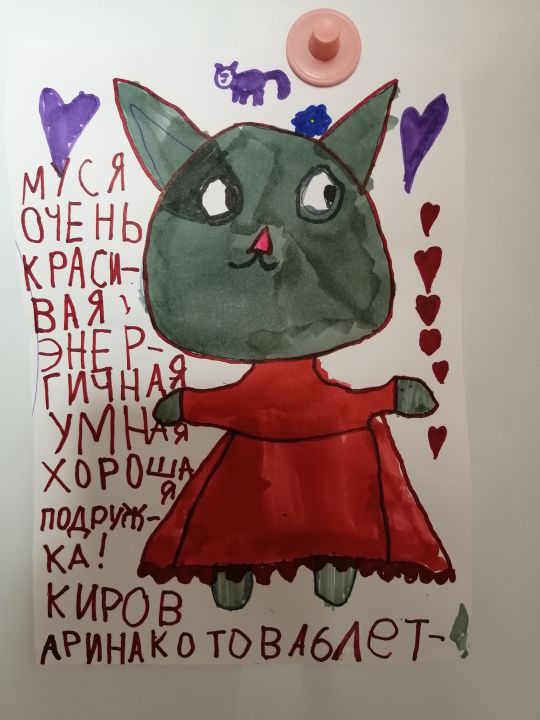 МУСЯ
ОЧЕНЬ
КРАСИ-
ВАЯ,
ЭНЕР-
ГИЧНАЯ
УМНАЯ
ХОРОША
Я
ПОДРУЖ-
КА!
КИРОВ
АРИНАКОТОВА6ЛЕТ-